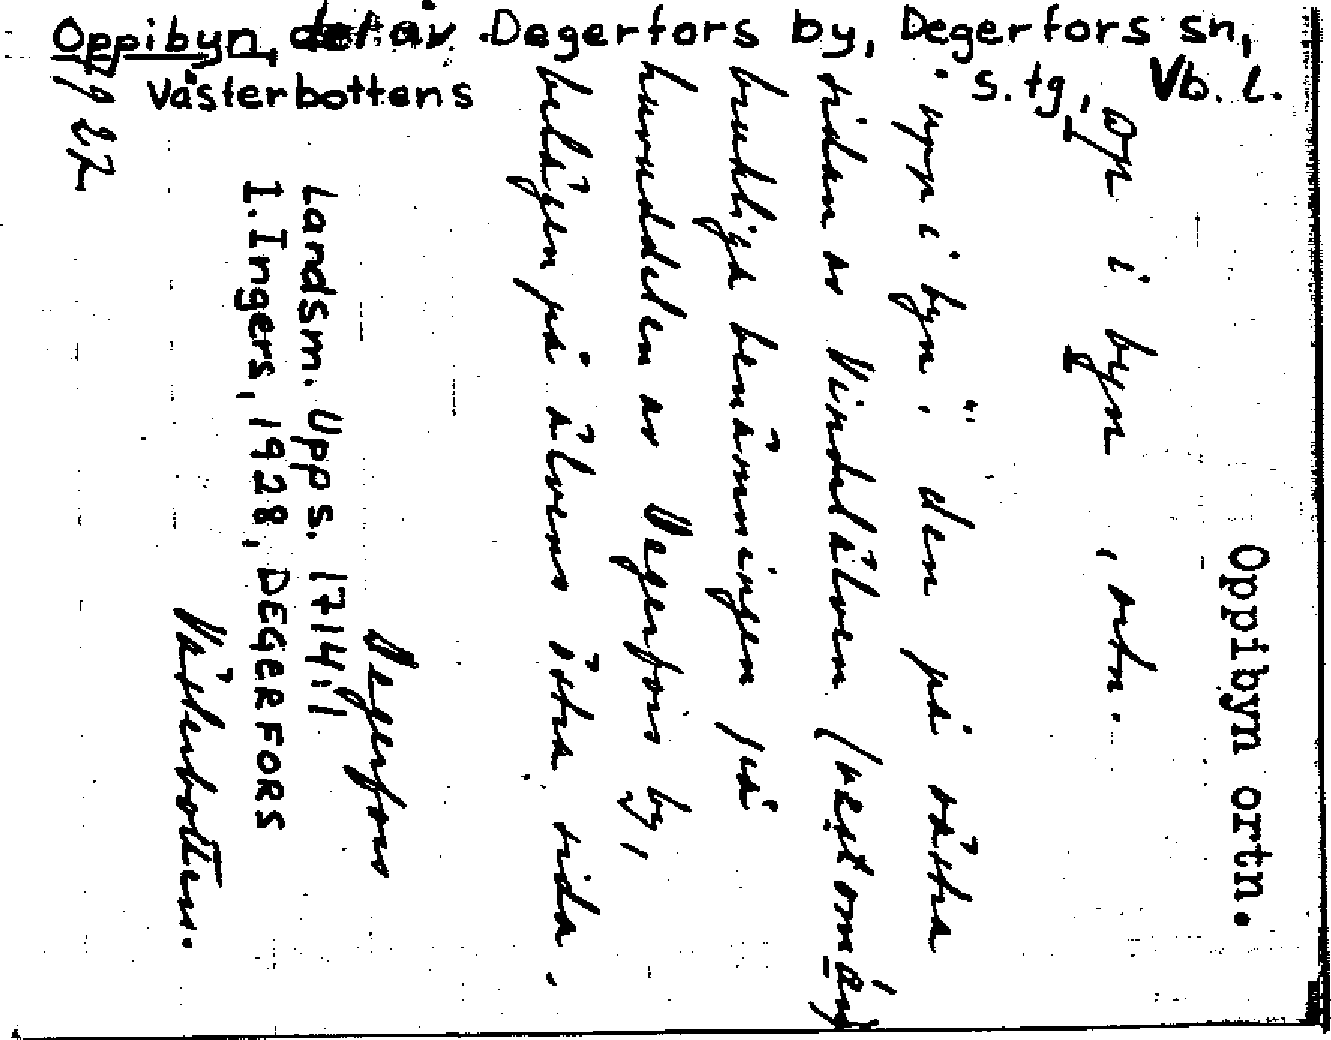 Oppibyn, del av Degerfors by, Degerfors sn,
Västerbottens s. tg, Vb. l.
Oppibyn ortn.
Op i byn, ortn.
"upp i byn", den på västra
sidan av Vindelälven
brukliga benämningen på
huvuddelen av Degerfors by,
belägen på älvens östra sida.
Degerfors
Landsm. Upps. 1714:1
I. Ingers, 1928, DEGERFORS
Västerbotten.